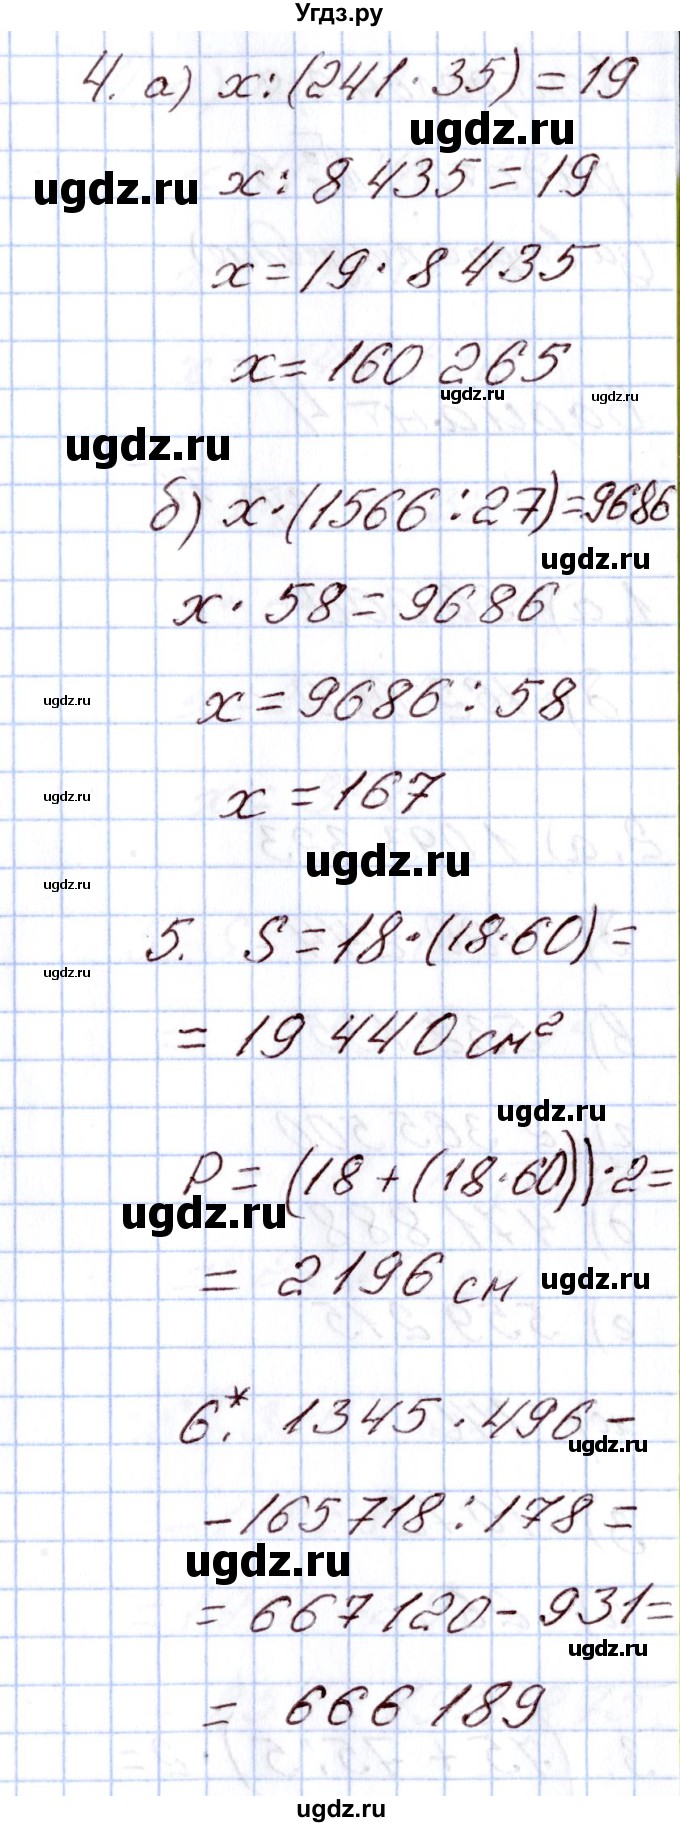 Угдз.ру
4. а) x:(241·35)=19
ugdz.ru
ugdz.ru
x:8 435=19
x=19·8 435
x=160 265
ugdz.ru
ugdz.ru
ugdz.ru
б) x·(1566:27)=9686
ugdz.ru
x·58=9686
ugdz.ru
x=9686:58
ugdz.ru
x=167
ugdz.ru
ugdz.ru
5. S=18·(18·60)=
ugdz.ru
=19 440 см²
ugdz.ru
P=(18+(18·60))·2=
ugdz.ru
=2196 см
ugdz.ru
6*. 1345·496-
ugdz.ru
-165718:178=
ugdz.ru
=667120-931=
ugdz.ru
=666 189
ugdz.ru